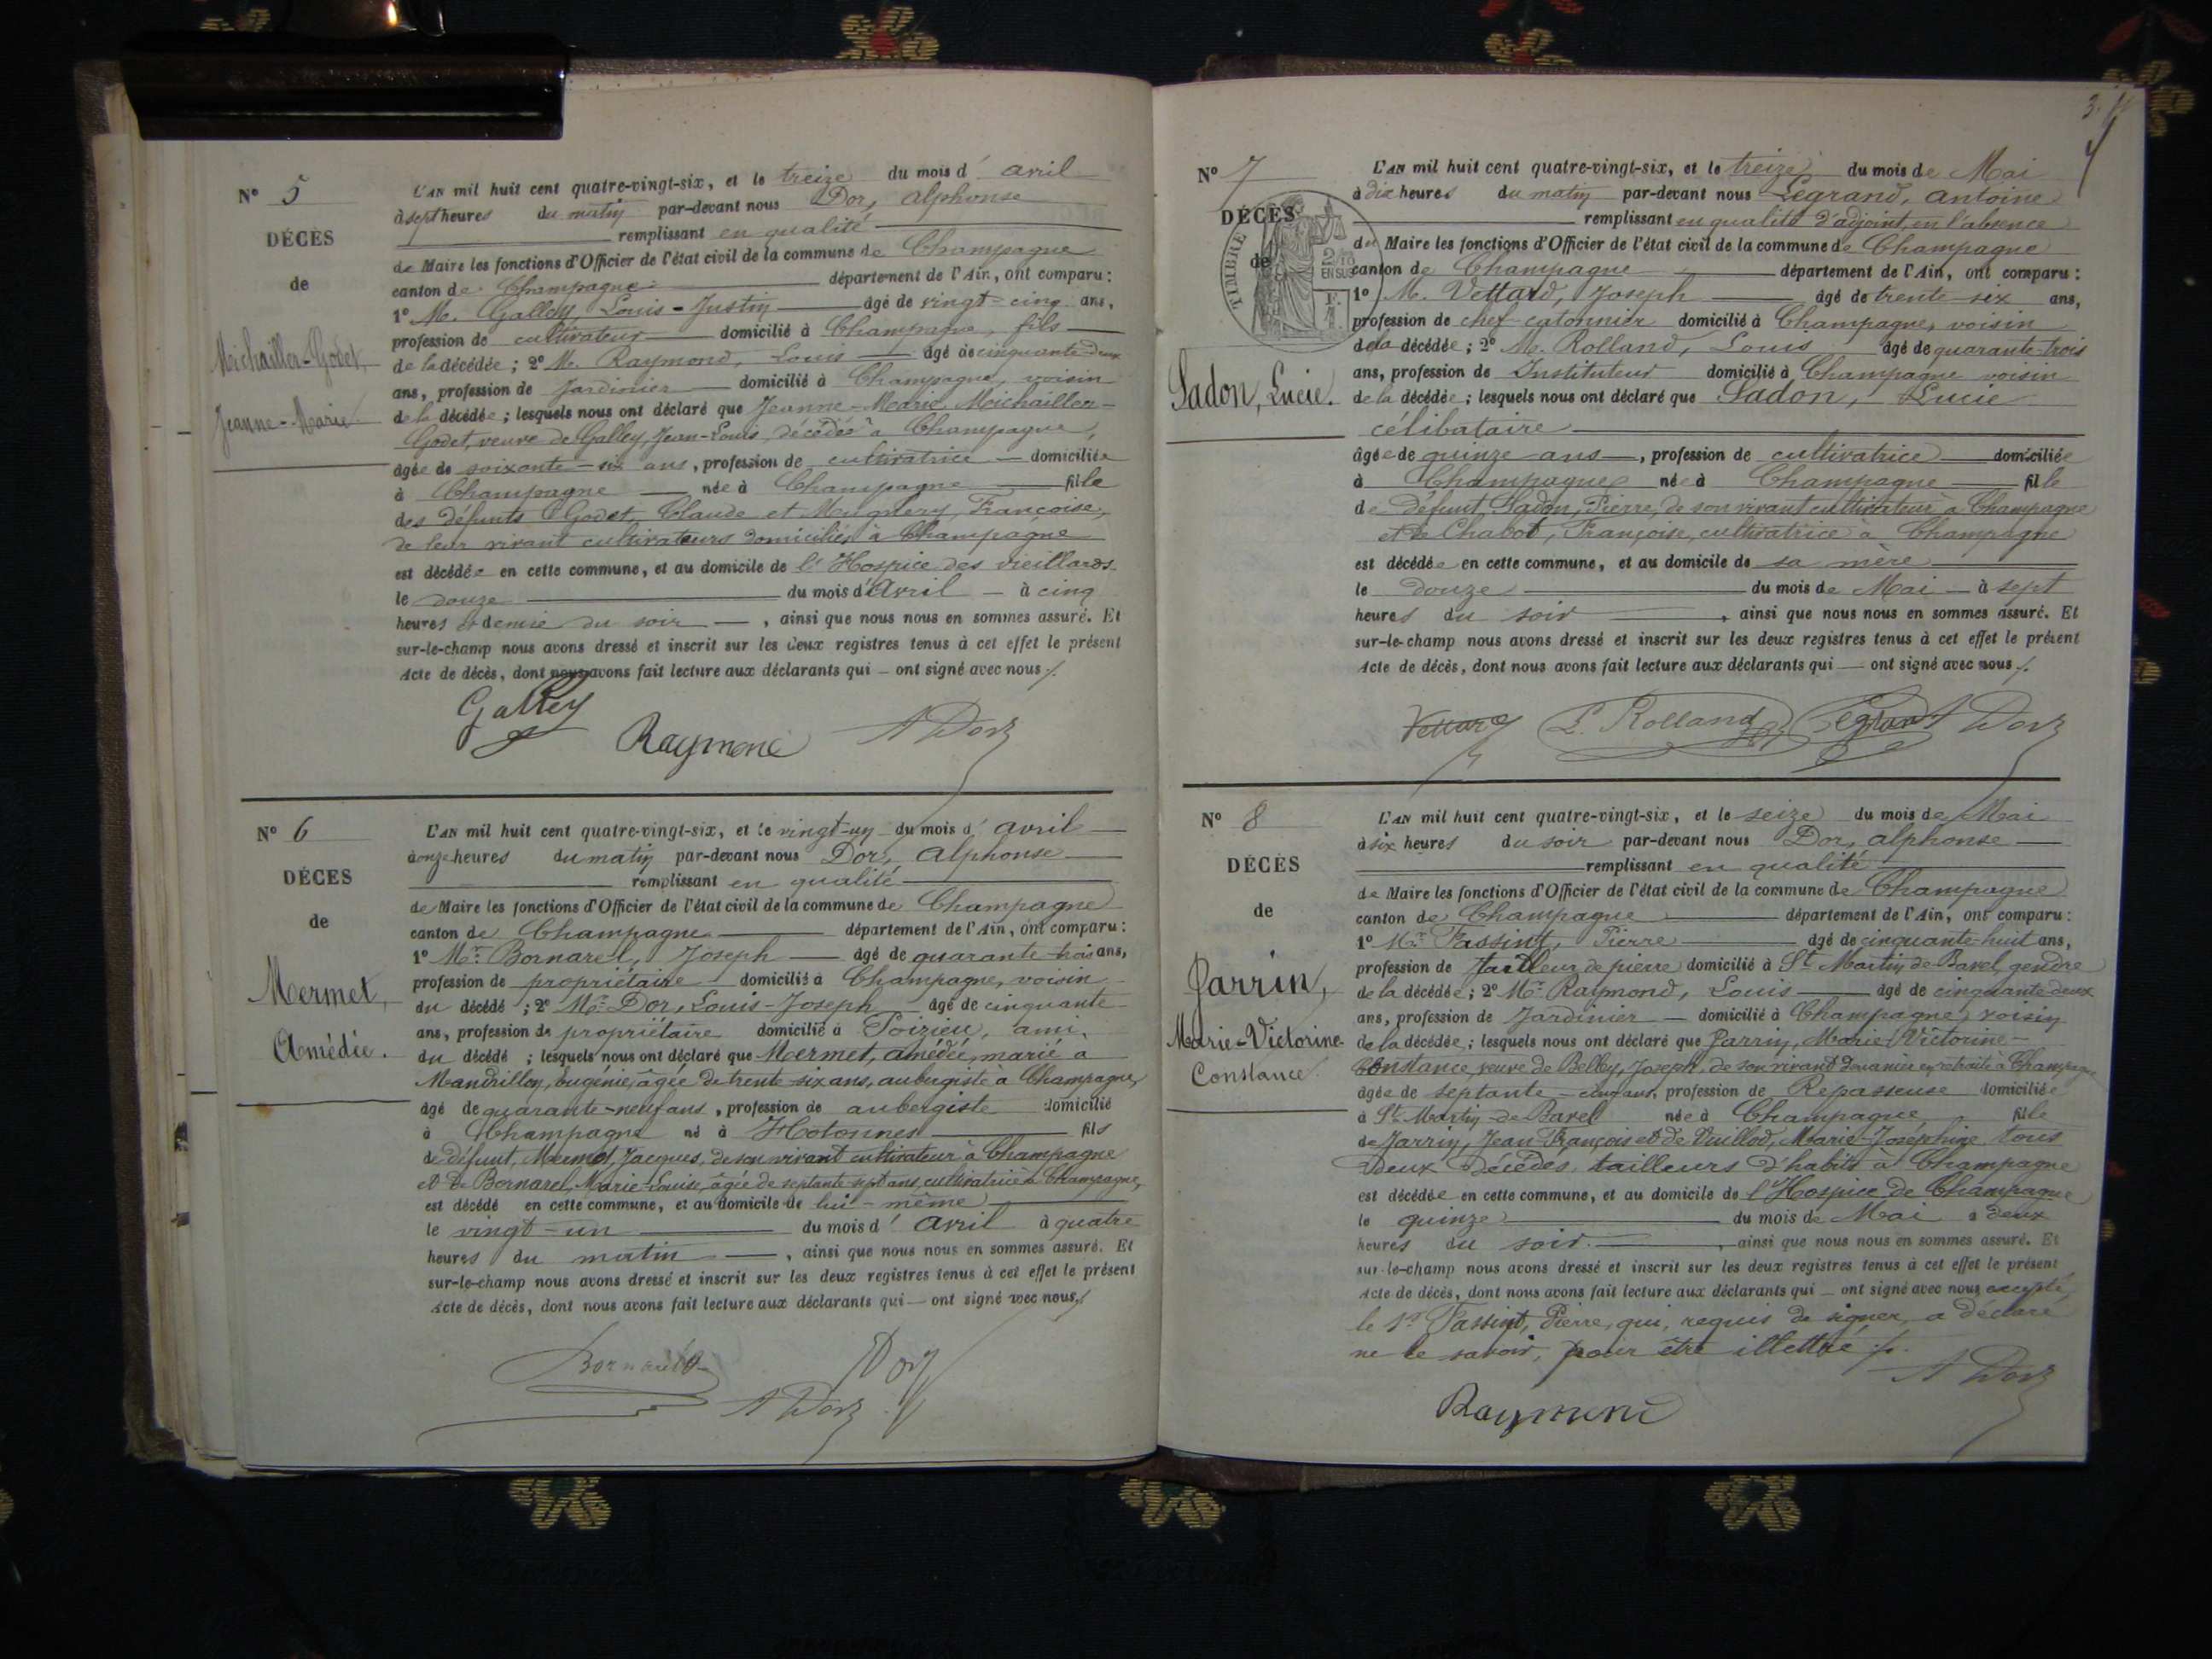 N° 5
DÉCÈS
de
Michaillon-Godet
Jeanne-Marie
L'AN mil huit cent quatre-vingt-six, et le treize du mois d' avril
à sept heures du matin par-devant nous Dor, Alphonse
remplissant en qualité
de Maire les fonctions d'Officier de l'état civil de la commune de Champagne
canton de Champagne département de l'Ain, ont comparu :
1° M. Galley, Louis-Justin âgé de vingt-cinq ans,
profession de cultivateur domicilié à Champagne, fils
de la décédée ; 2° M. Raymond, Louis âgé de cinquante-deux
ans, profession de Jardinier domicilié à Champagne, voisin
de la décédée ; lesquels nous ont déclaré que Jeanne-Marie Michailler-
Godet, veuve de Galley, Jean-Louis, décédée à Champagne,
âgée de soixante-six ans, profession de cultivatrice domiciliée
à Champagne née à Champagne fille
des défunts Godet, Claude et Mugnery, Françoise,
de leur vivant cultivateurs domiciliés à Champagne
est décédée en cette commune, et au domicile de l'Hospice des vieillards
le douze du mois d'Avril à cinq
heures et demie du soir, ainsi que nous nous en sommes assuré. Et
sur-le-champ nous avons dressé et inscrit sur les deux registres tenus à cet effet le présent
Acte de décès, dont nous avons fait lecture aux déclarants qui ont signé avec nous ./.
Galley Raymond A Dor
N° 6
DÉCES
de
Mermet,
Amédée.
L'AN mil huit cent quatre-vingt-six, et le vingt-un du mois d' avril
à onze heures du matin par-devant nous Dor, Alphonse
remplissant en qualité
de Maire les fonctions d'Officier de l'état civil de la commune de Champagne
canton de Champagne département de l'Ain, ont comparu :
1° Mr. Bornarel, Joseph âgé de quarante-trois ans,
profession de propriétaire domicilié à Champagne, voisin
du décédé ; 2° Mr. Dor, Louis-Joseph âgé de cinquante
ans, profession de propriétaire domicilié à Poizieu, ami
du décédé ; lesquels nous ont déclaré que Mermet, amédée, marié à
Mandrillon, Eugénie, âgée de trente-six ans, aubergiste à Champagne,
âgé de quarante-neuf ans, profession de aubergiste domicilié
à Champagne né à Hotonnes fils
de défunt, Mermet, Jacques, de son vivant cultivateur à Champagne
et De Bornarel, Marie-Louise, âgée de septante-sept ans, cultivatrice à Champagne,
est décédé en cette commune, et au domicile de lui-même
le vingt-un du mois d' Avril à quatre
heures du matin, ainsi que nous nous en sommes assuré. Et
sur-le-champ nous avons dressé et inscrit sur les deux registres tenus à cet effet le présent
Acte de décès, dont nous avons fait lecture aux déclarants qui ont signé avec nous ./.
Bornarel Dor
A Dor
3.
4
N° 7
DÉCÈS
de
TIMBRE
EN SUS
Sadon, Lucie.
L'AN mil huit cent quatre-vingt-six, et le treize du mois de Mai
à dix heures du matin par-devant nous Legrand, Antoine
remplissant en qualité d'adjoint, en l'absence
du Maire les fonctions d'Officier de l'état civil de la commune de Champagne
canton de Champagne département de l'Ain, ont comparu :
1° M. Vettard, Joseph âgé de trente-six ans,
profession de chef-catonnier domicilié à Champagne, voisin
de la décédée ; 2° M. Rolland, Louis âgé de quarante-trois
ans, profession de Instituteur domicilié à Champagne voisin
de la décédée ; lesquels nous ont déclaré que Sadon, Lucie
célibataire
âgée de quinze ans, profession de cultivatrice domiciliée
à Champagne née à Champagne fille
de Défunt, Sadon, Pierre, de son vivant cultivateur à Champagne
et de Chabot, Françoise, cultivatrice à Champagne
est décédée en cette commune, et au domicile de sa mère
le douze du mois de Mai à sept
heures du soir, ainsi que nous nous en sommes assuré. Et
sur-le-champ nous avons dressé et inscrit sur les deux registres tenus à cet effet le présent
Acte de décès, dont nous avons fait lecture aux déclarants qui ont signé avec nous ./.
Vettard L. Rolland Legrand Dor
N° 8
DÉCÈS
de
Jarrin,
Marie-Victorine
Constance.
L'AN mil huit cent quatre-vingt-six, et le seize du mois de Mai
à six heures du soir par-devant nous Dor, Alphonse
remplissant en qualité
de Maire les fonctions d'Officier de l'état civil de la commune de Champagne
canton de Champagne département de l'Ain, ont comparu :
1° Mr. Fassint, Pierre âgé de cinquante-huit ans,
profession de tailleur de pierre domicilié à St. Martin-de-Bavel, gendre
de la décédée ; 2° Mr. Raymond, Louis âgé de cinquante-deux
ans, profession de Jardinier domicilié à Champagne, voisin
de la décédée ; lesquels nous ont déclaré que Jarrin, Marie-Victorine-
Constance, veuve de Belley, Joseph, de son vivant douanier en retraite à Champagne
âgée de septante-cinq ans, profession de Repasseuse domiciliée
à St. Martin-de-Bavel née à Champagne fille
de Jarrin, Jean-François et de Vuillod, Marie-Joséphine, tous
deux décédés, tailleurs d'habits à Champagne
est décédée en cette commune, et au domicile de l'Hospice de Champagne
le quinze du mois de Mai à deux
heures du soir, ainsi que nous nous en sommes assuré. Et
sur-le-champ nous avons dressé et inscrit sur les deux registres tenus à cet effet le présent
Acte de décès, dont nous avons fait lecture aux déclarants qui ont signé avec nous excepté
le Sr Fassint, Pierre, qui, requis de signer, a déclaré
ne le savoir, pour être illettré ./.
A Dor
Raymond